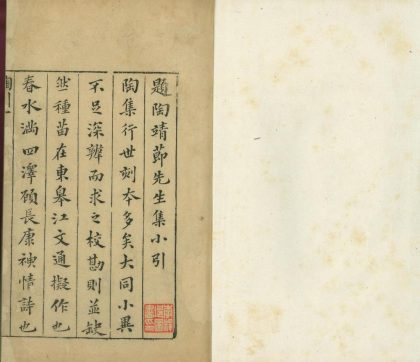 題陶靖節先生集小引
陶集行世刻本多矣大同小異
不足深辨而求之挍勘則並缺
然種苗在東皋江文通擬作也
春水滿四澤顧長康神情詩也